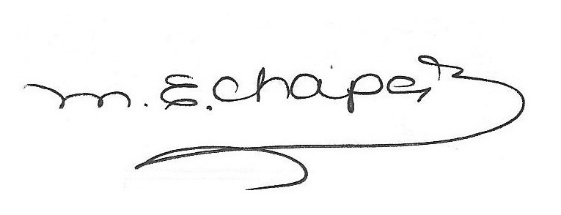 M. E. Chaper